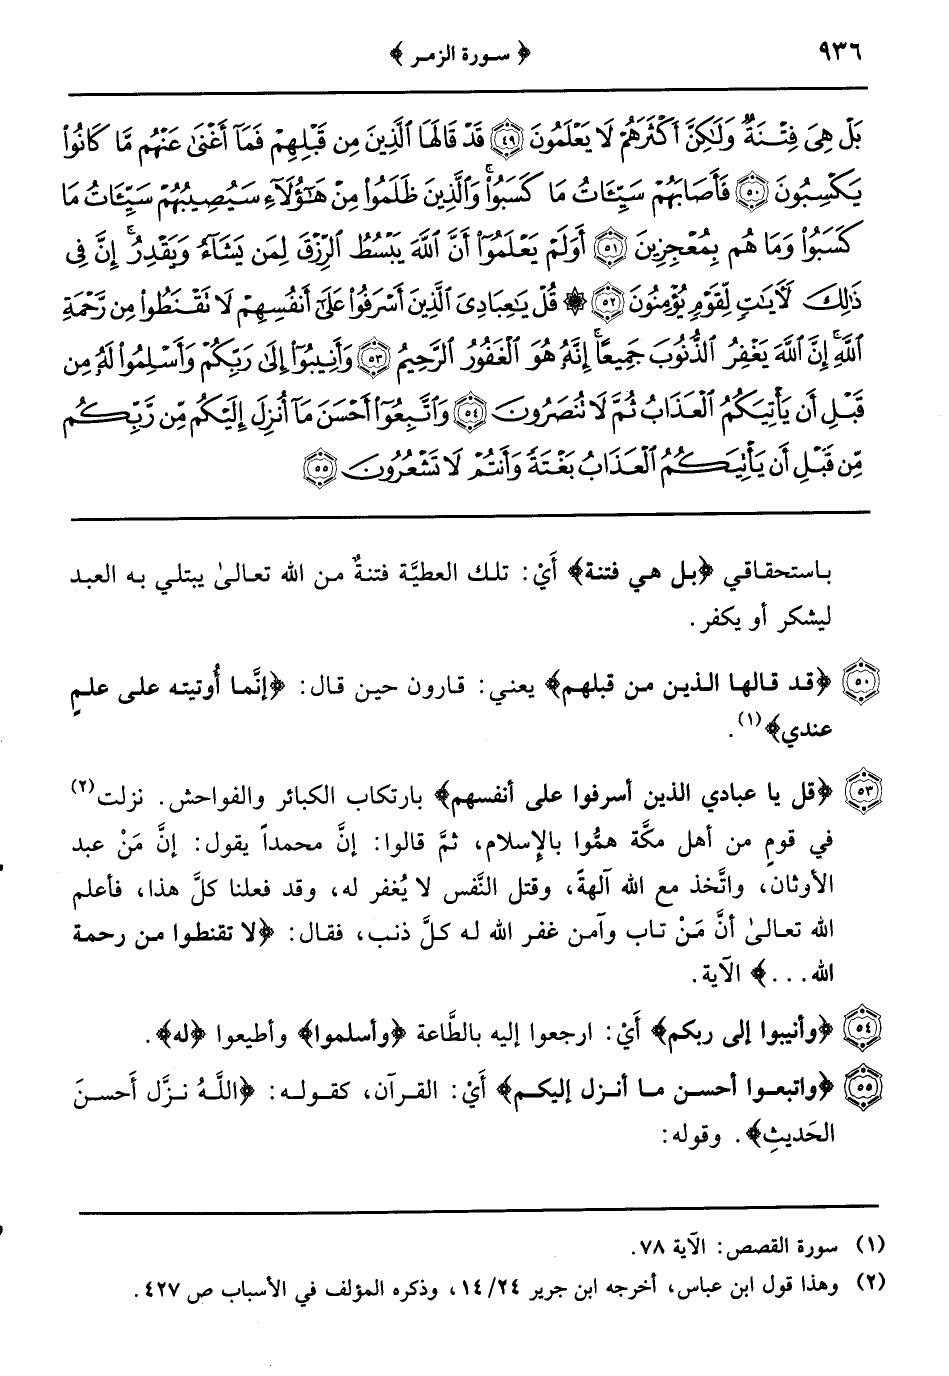 ﴿ سورة الزمر ﴾ ٩٣٦
بَلْ هِىَ فِتْنَةٌ وَلَٰكِنَّ أَكْثَرَهُمْ لَا يَعْلَمُونَ ٤٩ قَدْ قَالَهَا ٱلَّذِينَ مِن قَبْلِهِمْ فَمَآ أَغْنَىٰ عَنْهُم مَّا كَانُوا۟
يَكْسِبُونَ ٥٠ فَأَصَابَهُمْ سَيِّـَٔاتُ مَا كَسَبُوا۟ ۚ وَٱلَّذِينَ ظَلَمُوا۟ مِنْ هَٰٓؤُلَآءِ سَيُصِيبُهُمْ سَيِّـَٔاتُ مَا
كَسَبُوا۟ وَمَا هُم بِمُعْجِزِينَ ٥١ أَوَلَمْ يَعْلَمُوٓا۟ أَنَّ ٱللَّهَ يَبْسُطُ ٱلرِّزْقَ لِمَن يَشَآءُ وَيَقْدِرُ ۚ إِنَّ فِى
ذَٰلِكَ لَءَايَٰتٍ لِّقَوْمٍ يُؤْمِنُونَ ٥٢ ۞ قُلْ يَٰعِبَادِىَ ٱلَّذِينَ أَسْرَفُوا۟ عَلَىٰٓ أَنفُسِهِمْ لَا تَقْنَطُوا۟ مِن رَّحْمَةِ
ٱللَّهِ ۚ إِنَّ ٱللَّهَ يَغْفِرُ ٱلذُّنُوبَ جَمِيعًا ۚ إِنَّهُۥ هُوَ ٱلْغَفُورُ ٱلرَّحِيمُ ٥٣ وَأَنِيبُوٓا۟ إِلَىٰ رَبِّكُمْ وَأَسْلِمُوا۟ لَهُۥ مِن
قَبْلِ أَن يَأْتِيَكُمُ ٱلْعَذَابُ ثُمَّ لَا تُنصَرُونَ ٥٤ وَٱتَّبِعُوٓا۟ أَحْسَنَ مَآ أُنزِلَ إِلَيْكُم مِّن رَّبِّكُم
مِّن قَبْلِ أَن يَأْتِيَكُمُ ٱلْعَذَابُ بَغْتَةً وَأَنتُمْ لَا تَشْعُرُونَ ٥٥
باستحقاقي ﴿بل هي فتنة﴾ أَيْ: تلك العطيَّة فتنةٌ من الله تعالىٰ يبتلي به العبد
ليشكر أو يكفر.
٥٠ ﴿قد قالها الذين من قبلهم﴾ يعني: قارون حين قال: ﴿إنَّما أُوتيته على علمٍ
عندي﴾(١).
٥٣ ﴿قل يا عبادي الذين أسرفوا على أنفسهم﴾ بارتكاب الكبائر والفواحش. نزلت(٢)
في قومٍ من أهل مكَّة همُّوا بالإِسلام، ثمَّ قالوا: إنَّ محمداً يقول: إنَّ مَنْ عبد
الأوثان، واتَّخذ مع الله آلهةً، وقتل النَّفس لا يُغفر له، وقد فعلنا كلَّ هذا، فأعلم
الله تعالىٰ أنَّ مَنْ تاب وآمن غفر الله له كلَّ ذنب، فقال: ﴿لا تقنطوا من رحمة
الله...﴾ الآية.
٥٤ ﴿وأنيبوا إلى ربكم﴾ أَيْ: ارجعوا إليه بالطَّاعة ﴿وأسلموا﴾ وأطيعوا ﴿له﴾.
٥٥ ﴿واتبعوا أحسن ما أنزل إليكم﴾ أَيْ: القرآن، كقوله: ﴿اللَّهُ نزَّل أَحسنَ
الحَديثِ﴾. وقوله:
(١) سورة القصص: الآية ٧٨.
(٢) وهذا قول ابن عباس، أخرجه ابن جرير ١٤/٢٤، وذكره المؤلف في الأسباب ص ٤٢٧.